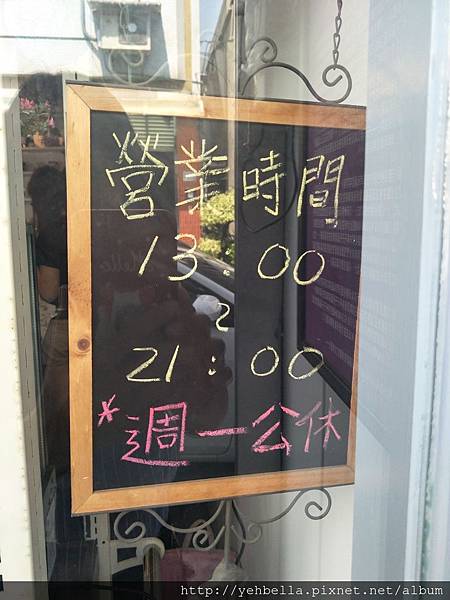 營業時間
13:00
～
21:00
*週一公休
http://yehbella.pixnet.net/album